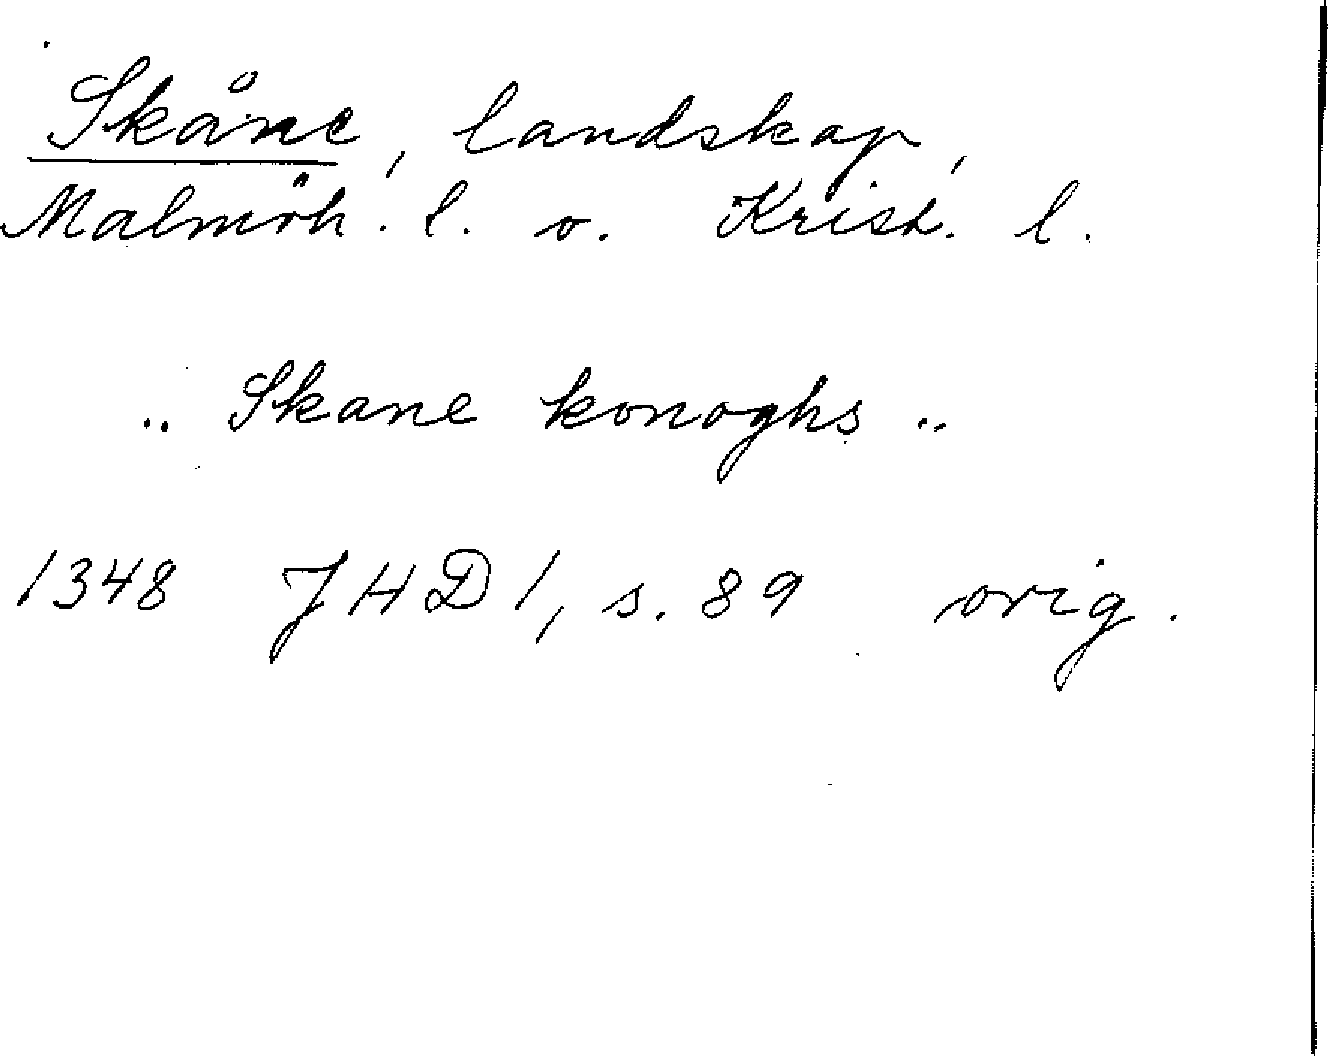 Skåne, landskap,
Malmöh. l. o. Krist. l.
.. Skane konoghs ..
1348 JHD 1, s. 89 orig.